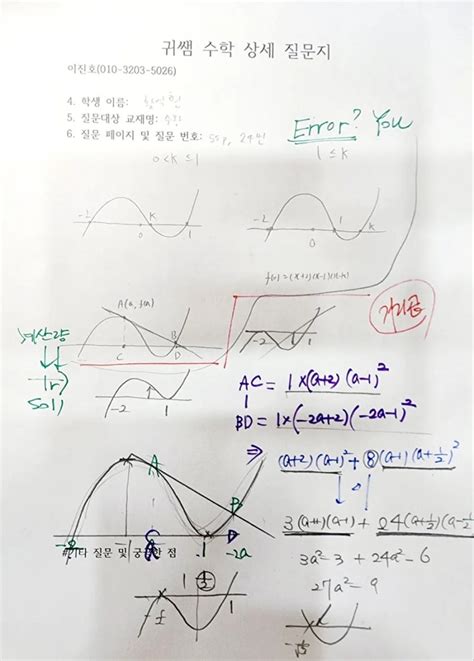 귀쌤 수학 상세 질문지
이진호(010-3203-5026)
4. 학생 이름:
5. 질문대상 교재명: 수학
6. 질문 페이지 및 질문 번호: 55p, 24번
Error? You
0<k≤1
1≤k
-2 0 k 1
-2 0 1 k
f(x)=(x+2)(x-1)(x-k)
A(a, f(a))
B
C D
-2 1
거리곱
계산량
↓↓
Sol)
-2 1
AC = 1×(a+2)(a-1)²
BD = 1×(-2a+2)(-2a-1)²
⇒ (a+2)(a-1)²+⑧(a-1)(a+½)²
3(a+1)(a-1) + 24(a+½)(a-½)
3a²-3 + 24a²-6
27a²-9
A
B
-2 -1 C 1 D -2a
#기타 질문 및 궁금한 점
-½ ½ 1